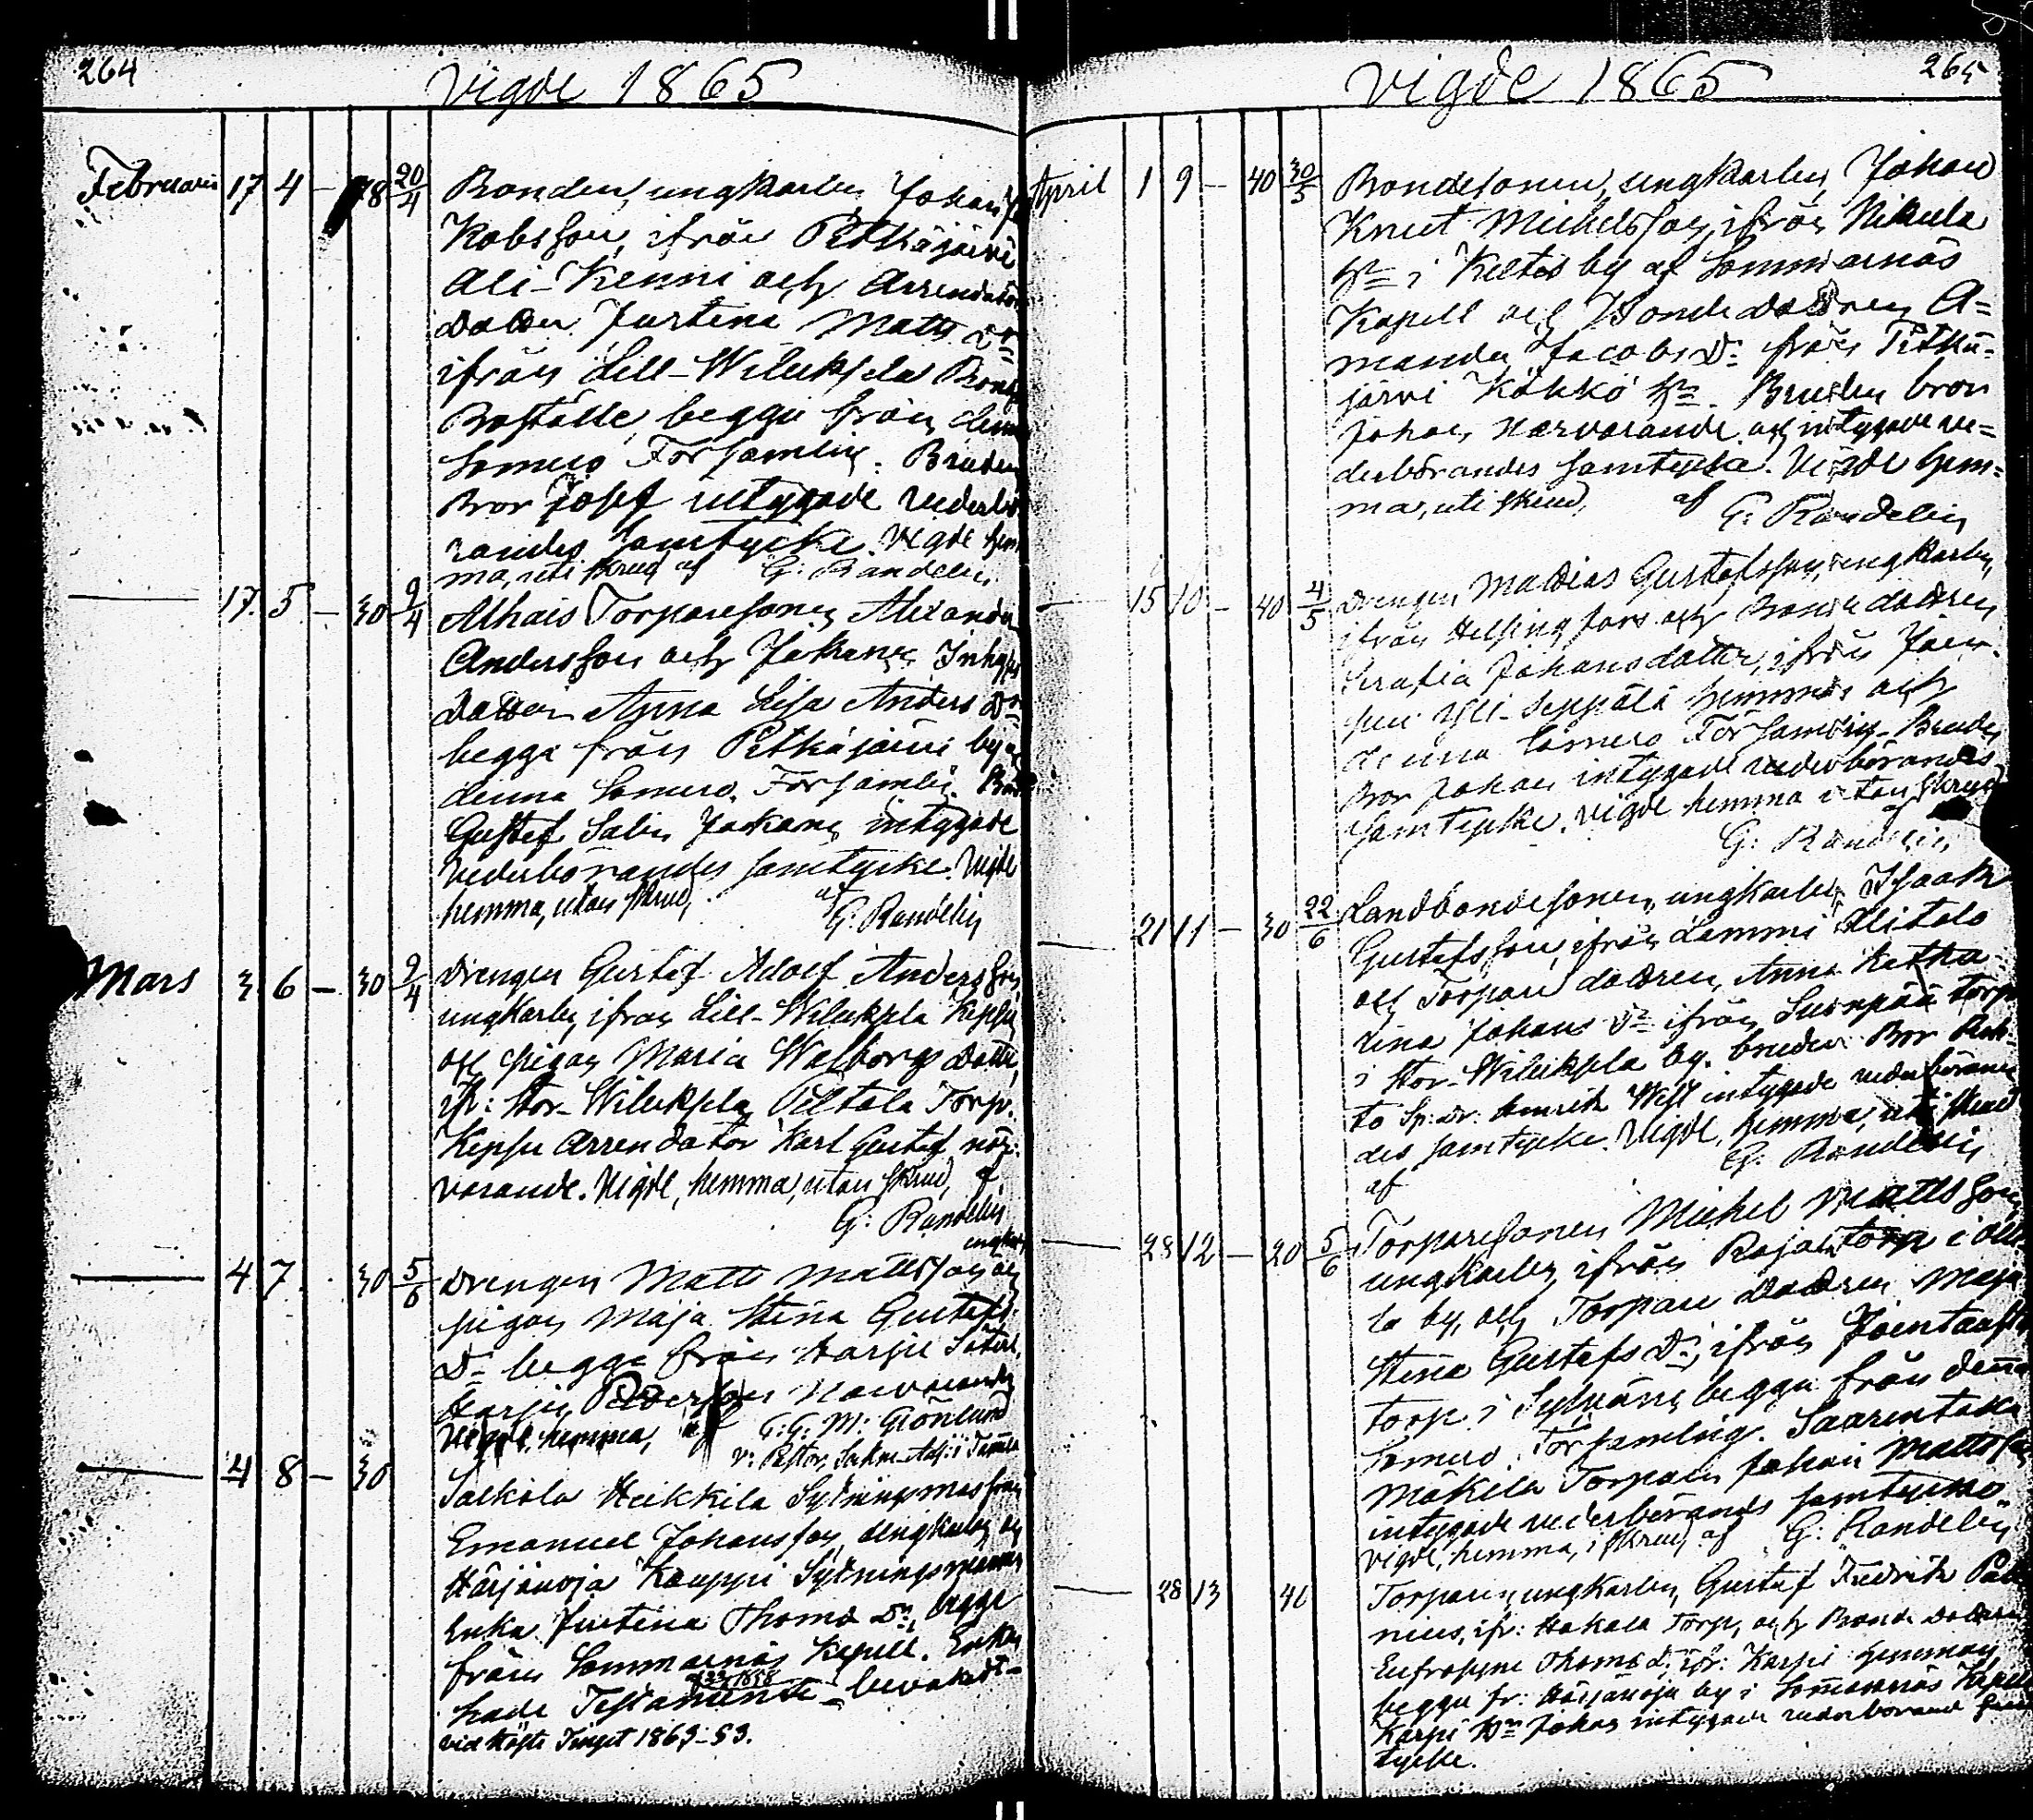 264
Vigde 1865
Februarii 17 4 – 78 20/4 Bonden, ungkarlen Johan Ja
Kobsson, ifrån Pitkäjärvi
Ali-Kenni och Arrendators
dotter Justina Matts Dr
ifrån Lill-Wiluksela
Boställe, begge från denna
Somero Församling. Bruden
Bror Josef intygade vederbö
randes samtycke. Vigde hem
ma, uti skrud af G: Randelin
17. 5 – 30 9/4 Alhais Torparesonen Alexander
Andersson och Jakans Inhyses
dotter Anna Lisa Anders Dr
begge från Pitkäjärvi by af
denna Somero Församlin.
Gustaf Salin Jakans intygade
vederbörandes samtycke. Vigde
hemma, utan skrud, af
G: Randelin
Mars 3 6 – 30 9/4 Drengen Gustaf Adolf Andersson
ungkarlen ifrån Lill-Wiluksela Keppu
och pigan Maria Walborgs dotter,
ifr: Stor-Wiluksela Piltola Torp.
Keppu Arrendator Karl Gustaf när-
varande. Vigde, hemma, utan skrud, af
G: Randelin
ungkarl
4 7. 30 5/6 Drengen Matts Mattsson och
pigan Maja Stina Gustafs
Dr begge från Harju Säteri,
Harju Pederson närvarande
Vigde, hemma, af G: G: M: Grönlund
v: Pastor, Sakrm. Adj: i Tammela
4 8 – 30
Salkola Heikkilä Sytningsmansson
Emanuel Johansson, ungkarlen och
Härjänoja Kauppi Sytningsmannens
Enka Justina Thomas Dr, begge
från Sommarnäs Kapell. Enkan
hade Testamente bevakadt
vid Höste Tinget 1863. § 3.
265
Vigde 1865
April 1 9 – 40 30/5 Bondesonen, ungkarlen Johan
Knut Michelsson, ifrån Nikula
hn i Keltis by af Sommarnäs
Kapell och Bondedottren A=
manda Jacobs Dr från Pitkä=
järvi Köhkö hn. Bruden bror
Johan närvarande och intygade ve=
derbörandes samtycke. Vigde hem=
ma, uti skrud, af G: Randelin
15 10 – 40 4/5 Drengen Mattias Gustafsson, ungkarlen,
ifrån Helsingfors och Bondedottren
Serafia Johansdotter, ifrån
Yli-Seppälä hemman och
denna Somero Församling. Bruden
Bror Johan intygade vederbörandes
samtycke. Vigde hemma utan skrud
af
G: Randelin
21 11 – 30 22/6 Landbondesonen, ungkarlen Isaak
Gustafsson, ifrån Lammi Alitalo
och Torpare dottren, Anna Katha
rina Johans Dr ifrån Suonpää torp
i Stor-Wiluksela by. bruden Bror
to Sp: Dr: Henrik West intygade vederböran
des samtycke. Vigde, hemma, uti skrud
af G. Randelin
28 12 – 20 5/6 Torparesonen Michel Mattsson
ungkarlen, ifrån Rajala torp i
la by, och Torpare dottren Maja
Stina Gustafs Dr, ifrån
torp i Sylvänä begge från denna
Somero. Församling. Saarentaka
Mäkelä Torparen Johan Mattsson
intygade vederbörandes samtycke
Vigde, hemma, i skrud, af G: Randelin
28 13 40
Torparen, ungkarlen, Gustaf Fredrik
nius, ifr: Hakala Torp, och Bonde dottren
Eufrosyne Thomas d. ifr: Karpi hemman
begge fr: Härjänoja by i Sommarnäs Kapell
Karpi Bn Johan intygade vederbörand sam
tycke.